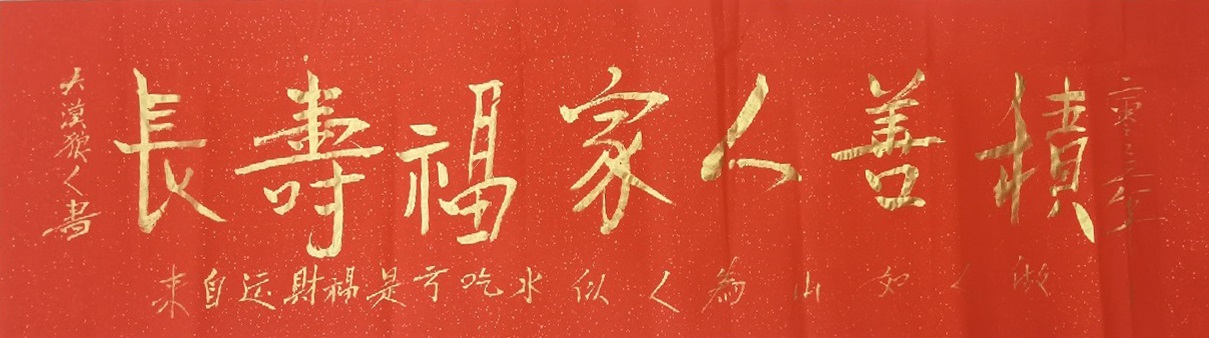 二零二二年
積善人家福壽長
做人如山為人似水吃亏是福財运自来
大漠狼人書